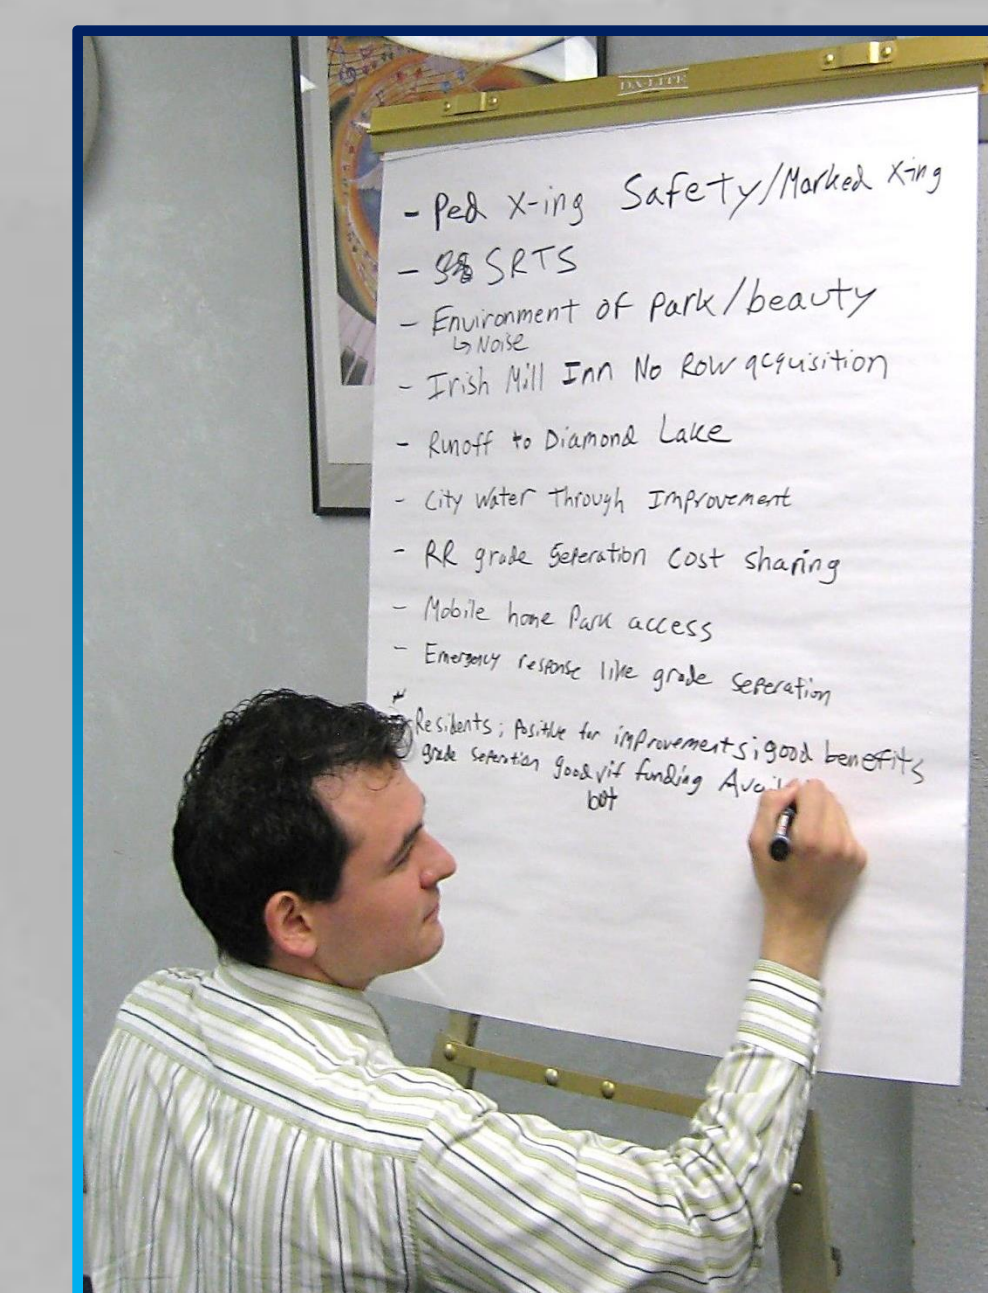 DA-LITE
- Ped X-ing Safety/Marked X-ing
- SRTS
- Environment of Park/beauty
↳ Noise
- Irish Mill Inn No Row acquisition
- Runoff to Diamond Lake
- City Water Through Improvement
- RR grade Seperation Cost sharing
- Mobile home Park access
- Emergency response like grade seperation
Residents; Positive for improvements; good benefits
grade seperation good if funding
but